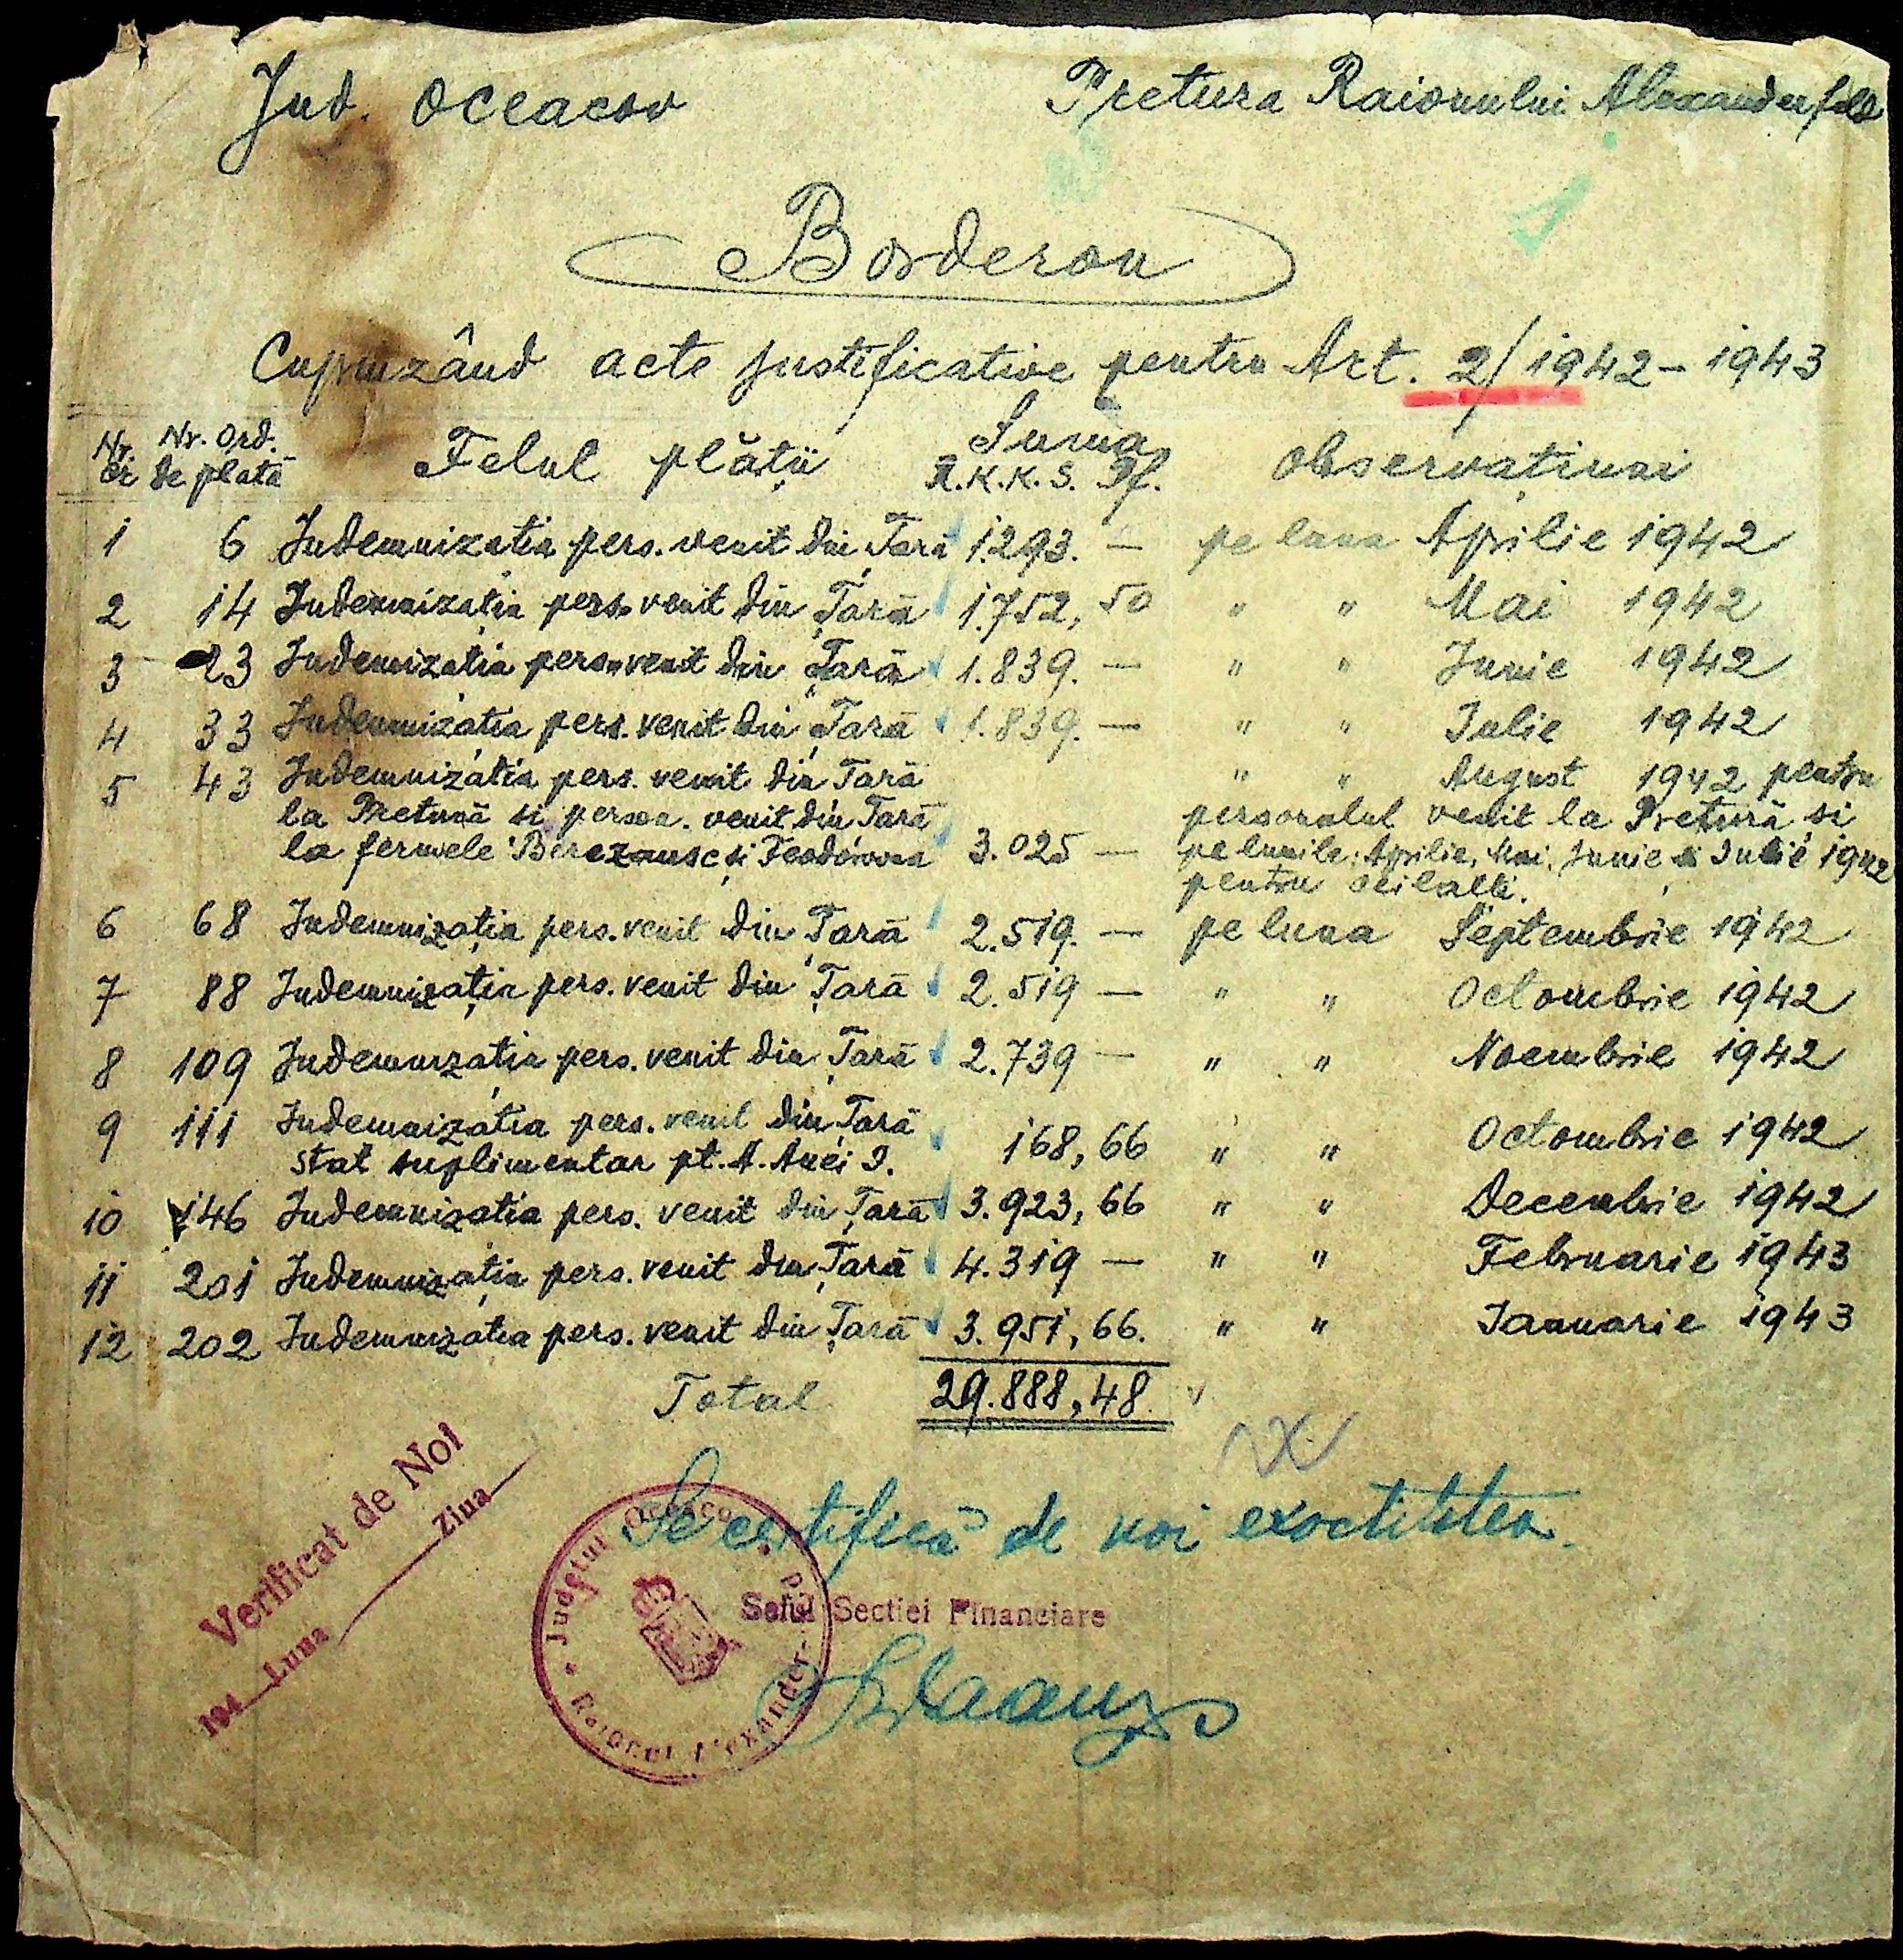 Jud. Oceacov Pretura Raionului Alexanderfeld
Borderou
Cuprinzând acte justificative pentru Art. 2/1942-1943
Nr. cr. Nr. Ord. de plată Felul plății Suma R.K.K.S. Pf. Observațiuni
1 6 Indemnizația pers. venit din Țară 1.293. — pe luna Aprilie 1942
2 14 Indemnizația pers. venit din Țară 1.752, 50 " " Mai 1942
3 23 Indemnizația pers. venit din Țară 1.839. — " " Junie 1942
4 33 Indemnizația pers. venit din Țară 1.839. — " " Iulie 1942
5 43 Indemnizația pers. venit din Țară " " August 1942 pentru
la Pretură si person. venit din Țară personalul venit la Pretură si
la fermele și Feodorovna 3.025 — pe lunile: Aprilie, Mai, Junie si Iulie 1942
pentru ceilalti.
6 68 Indemnizația pers. venit din Țară 2.519. — pe luna Septembrie 1942
7 88 Indemnizația pers. venit din Țară 2.519 — " " Octombrie 1942
8 109 Indemnizația pers. venit din Țară 2.739 — " " Noembrie 1942
9 111 Indemnizația pers. venit din Țară
stat suplimentar pt. A. 168,66 " " Octombrie 1942
10 146 Indemnizația pers. venit din Țară 3.923,66 " " Decembrie 1942
11 201 Indemnizația pers. venit din Țară 4.319 — " " Februarie 1943
12 202 Indemnizația pers. venit din Țară 3.951,66. " " Ianuarie 1943
Total 29.888,48
Verificat de Noi
194 Luna Ziua
Se certifică de noi exactitatea.
Seful Sectiei Financiare
Județul Oceacov
Raionul Alexander